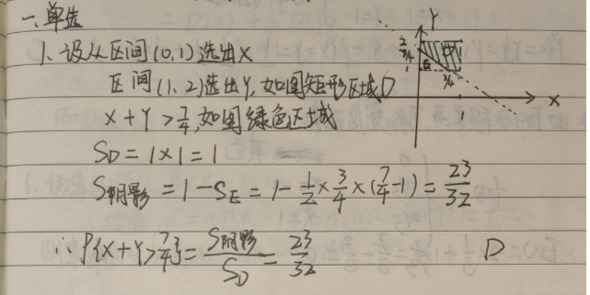 一、单选
1、设从区间(0,1)选出X
区间(1,2)选出Y,如图矩形区域D
X+Y>7/4,如图绿色区域
S_D=1×1=1
S阴影=1-S_E=1-1/2×3/4×(7/4-1)=23/32
∴P{X+Y>7/4}=S阴影/S_D=23/32 D
Y
2
7/4
1
E
3/4
X